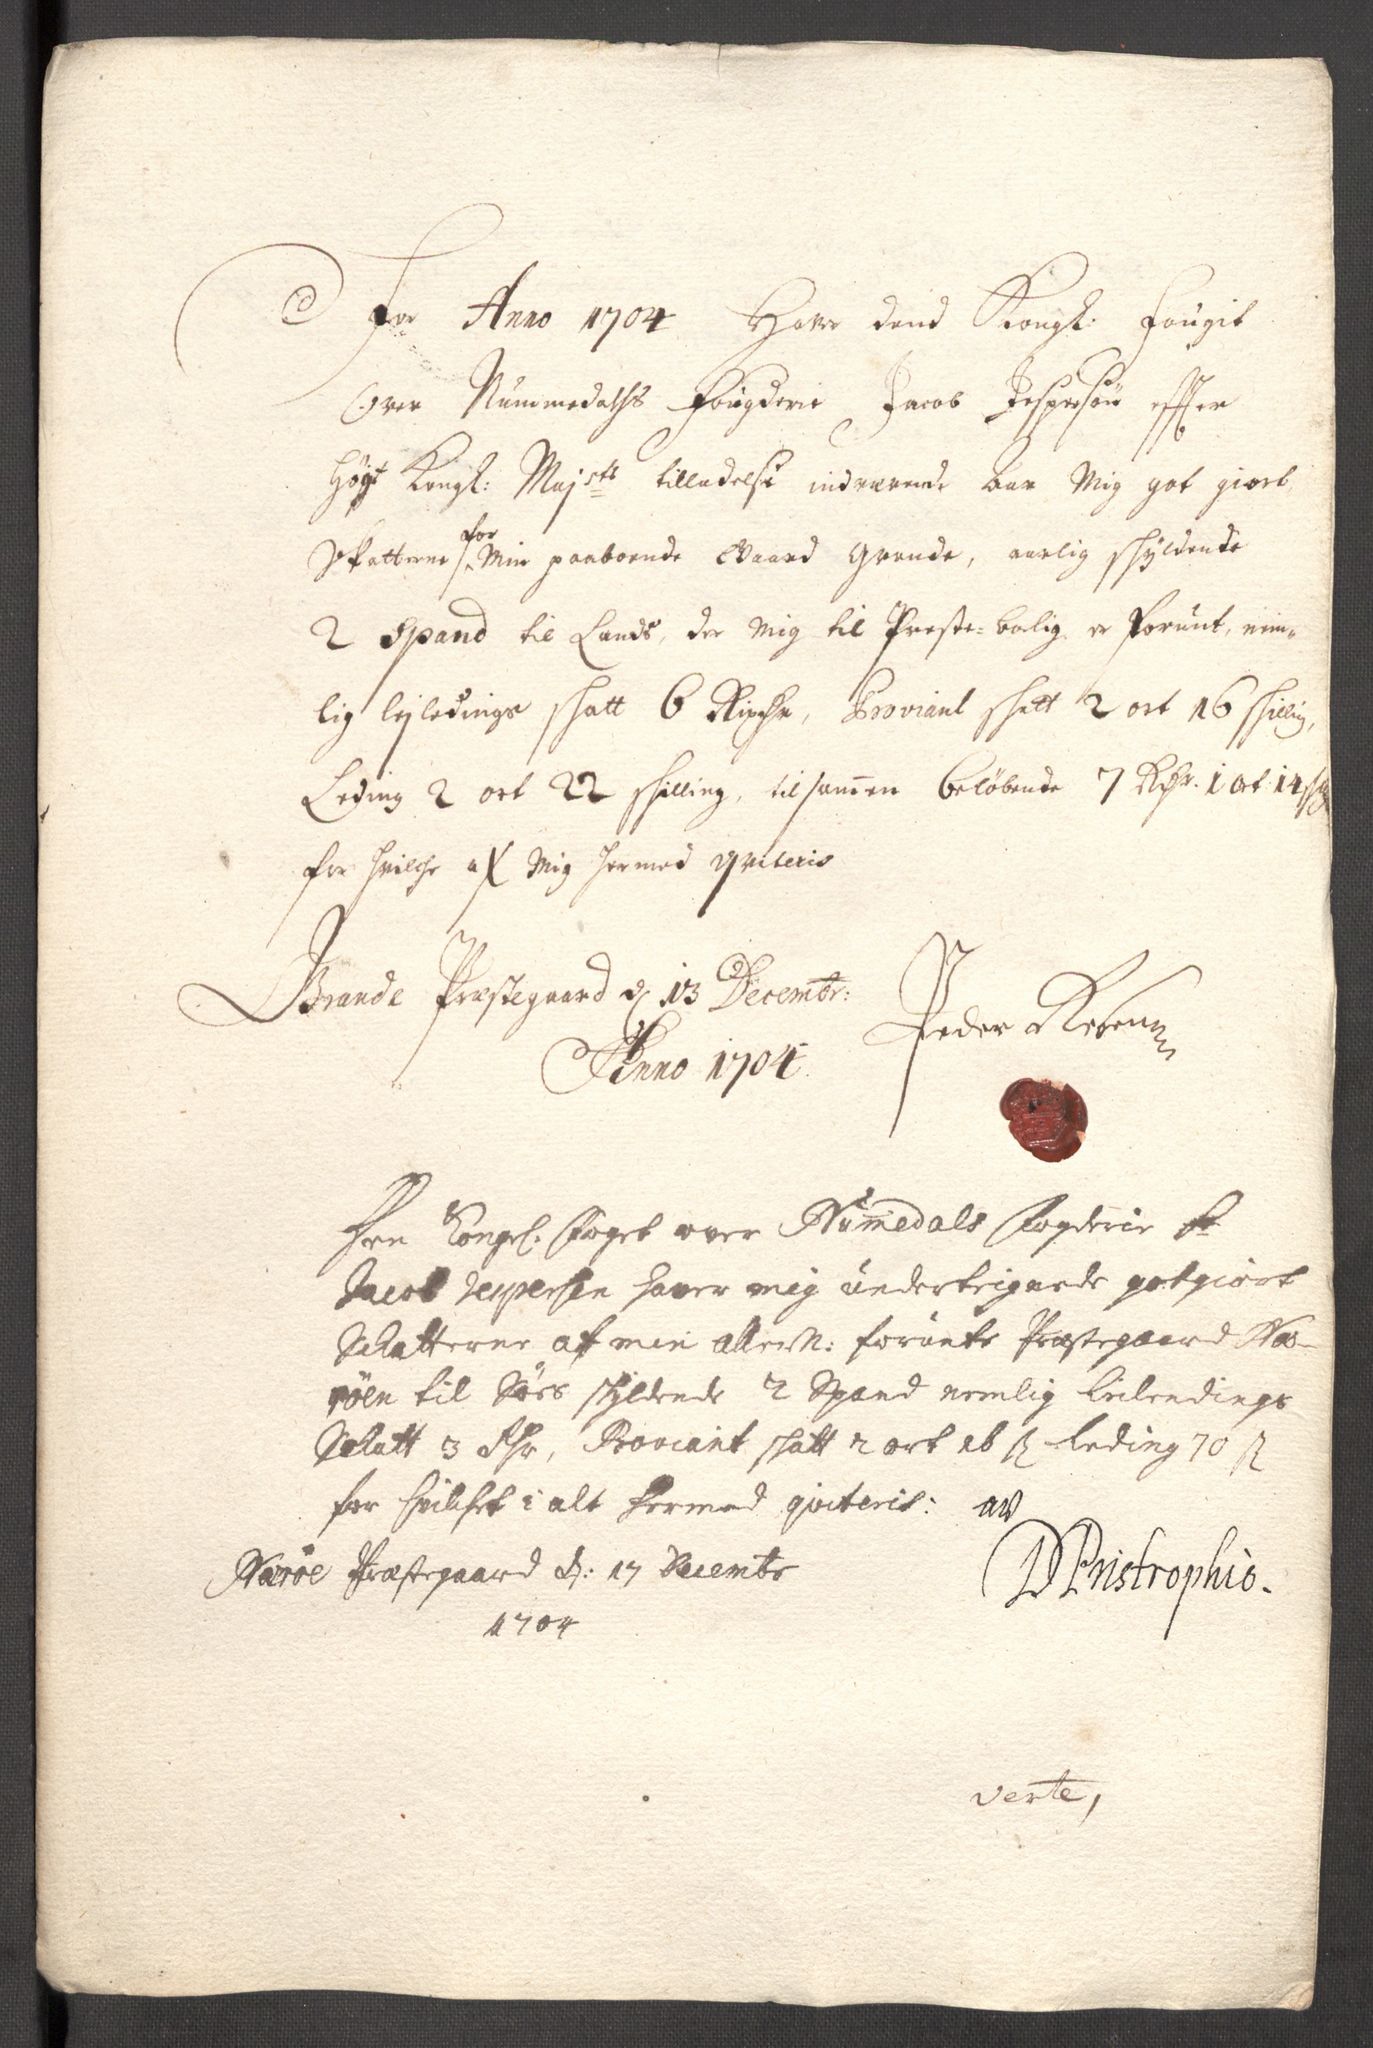 For Anno 1704 Haver dend Kongl: Fougit
Over Nummedahls Fougderie Jacob Jespersøn effter
høyst Kongl: Maj.sts tilladelse indværende aar Mig got giort
Skatterne for Min paaboende Gaard Grande, aarlig skyldende
2 Spand til Lands, der Mig til Preste-bolig er forunt, nem-
lig lejledings skatt 6 Rixdr, Proviant skatt 2 ort 16 skilling,
Leding 2 ort 22 skilling, tilsammen beløbende 7 Rdr. 1 ort 14 sk
for hvilche af Mig hermed qviteris
Grande Præstegaard d 13 Decembr:
Anno 1704.
Peder
Kongel. Foget over Nummedals Fogderie Sr
Jacob Jespersen haver mig underteignede godtgiort
Skatterne af min allern: forunte Præstegaard Næ-
röen til Söes skyldende 2 Spand nemlig Leilendings
Skatt 3 Rdr, Proviant skatt 2 ort 16 ß Leding 70 ß
for hvilket i alt hermed qviteris: av
Næröe Præstegaard d: 17 Decembr
1704
DPristrophio.
Verte,